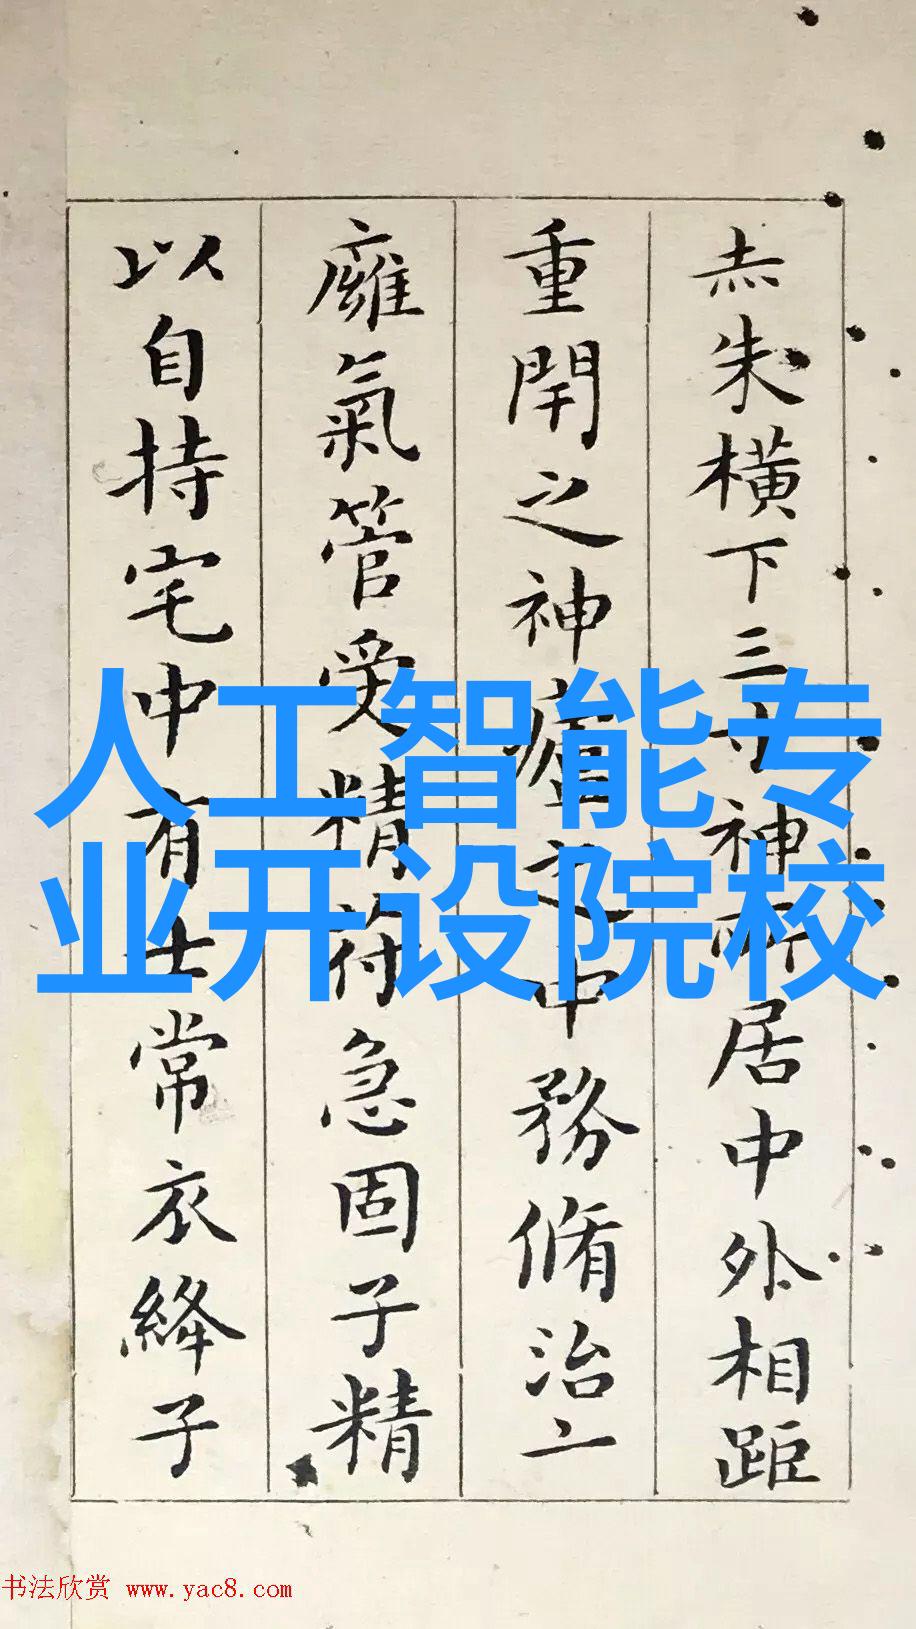 赤朱橫下三寸神所居中外相距
重閈之神廬之中務脩治二
癰氣管受精符急固子精
以自持宅中有士常衣絳子
人工智能专
业开设院校
书法欣赏 www.yac8.com